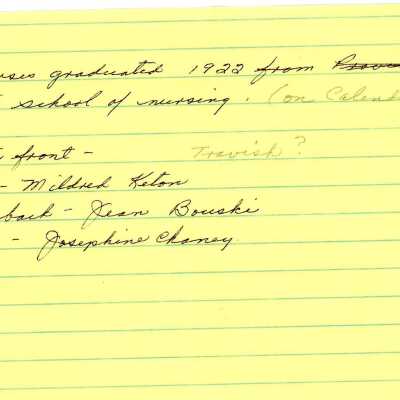 uses graduated 1922 from
school of nursing. (on Calend
front - Travish?
- Mildred Keton
back - Jean Bouski
- Josephine Chaney